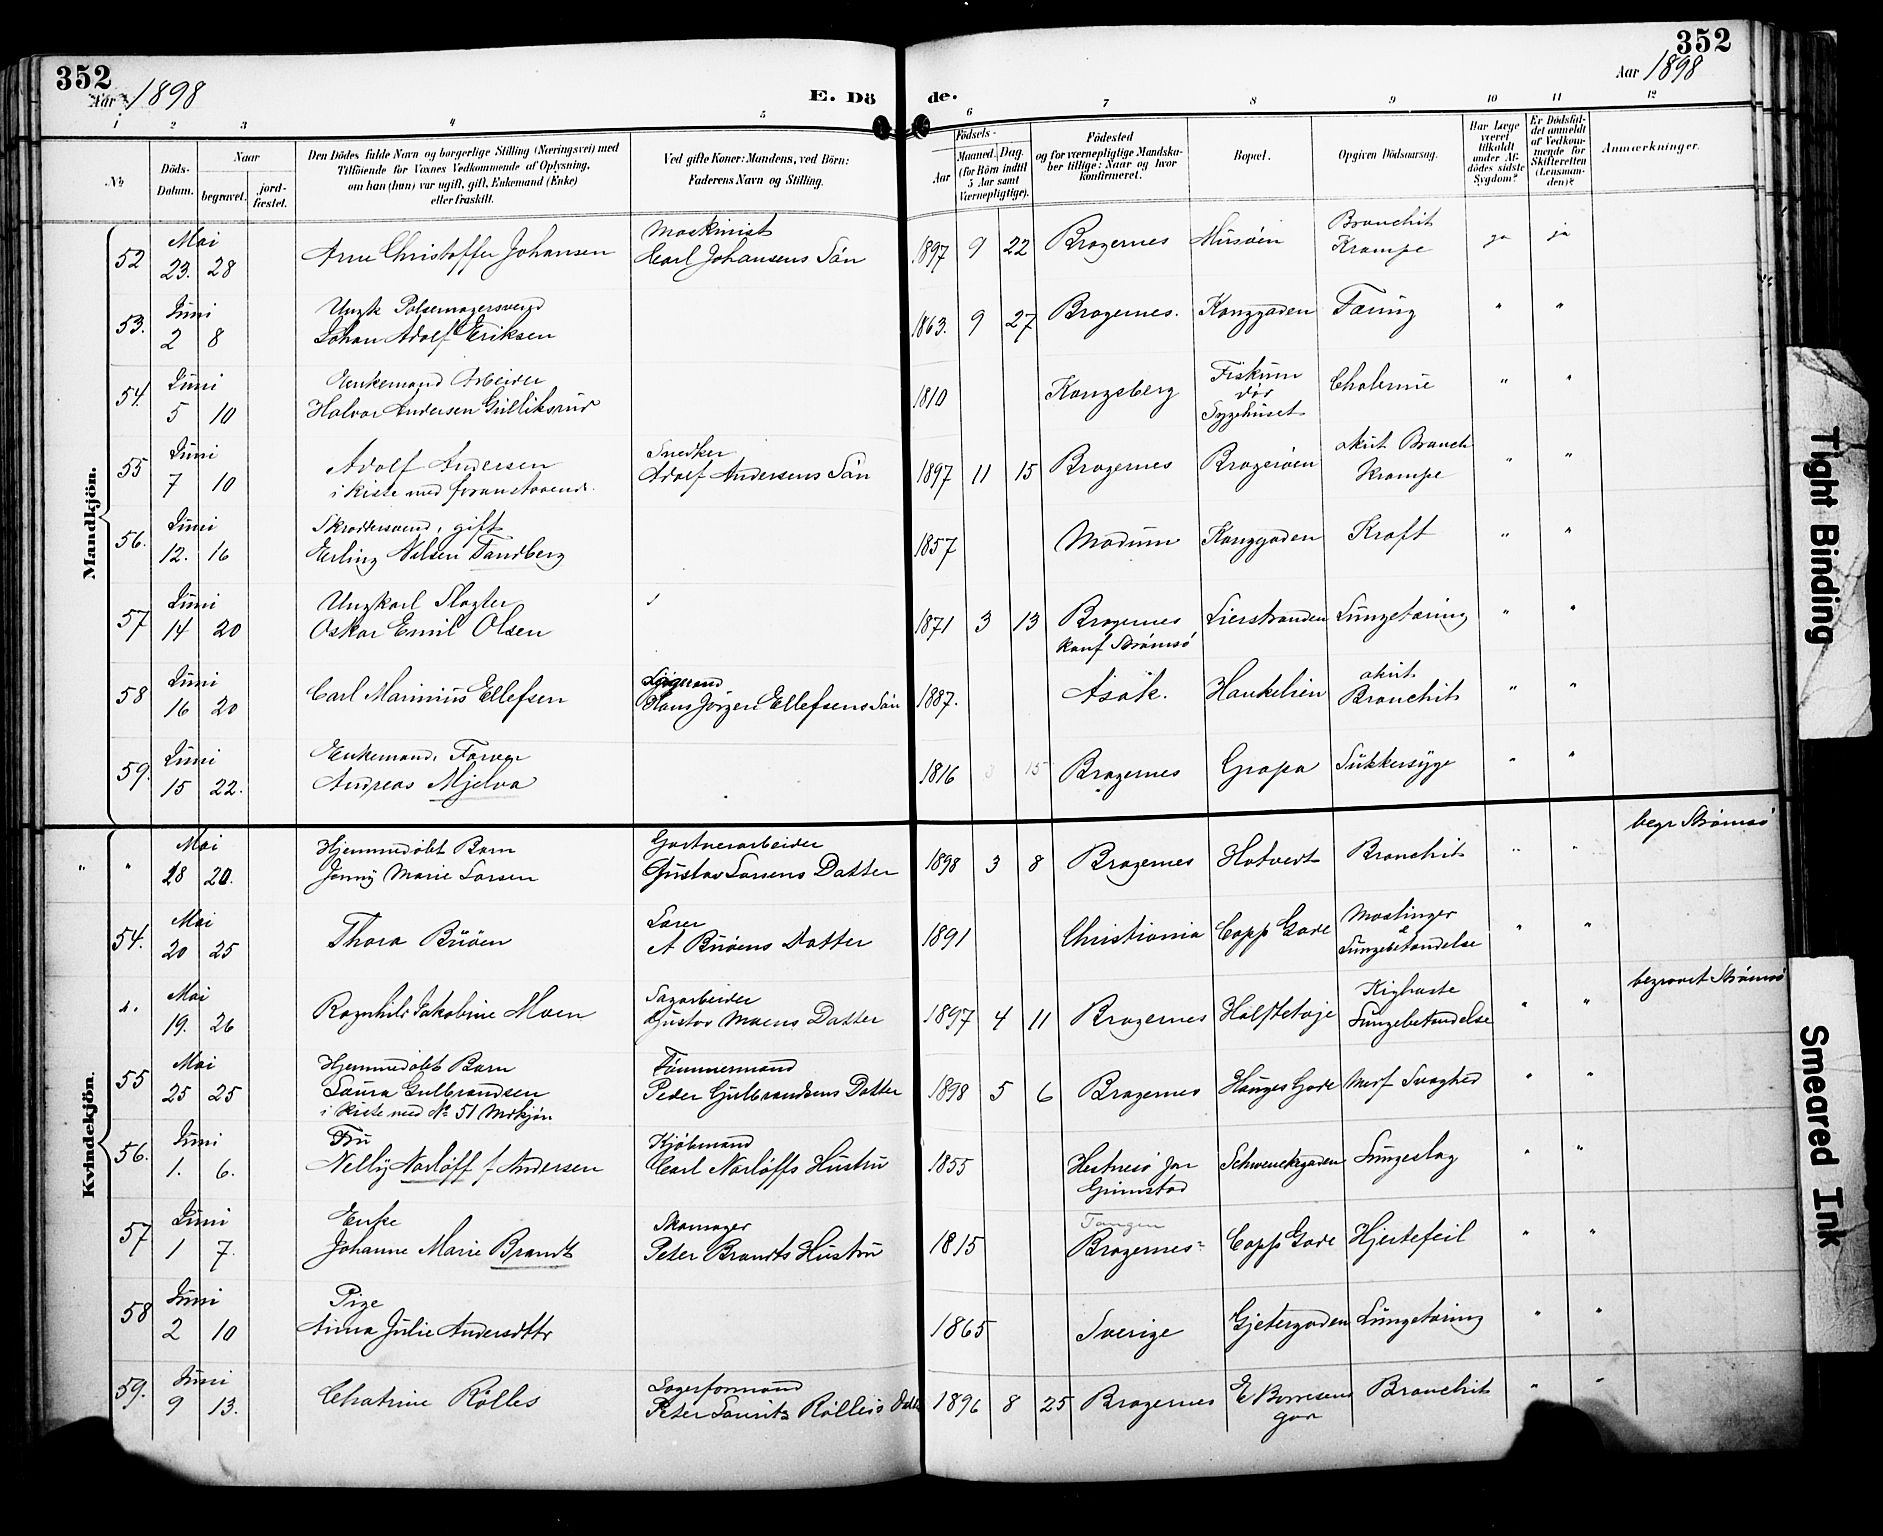 352
Aar 1898
E. Dö de.
352
Aar 1898
1 2 3 4 5 6 7 8 9 10 11 12
No
Döds-Datum.
Naar
begravet.
jord-fæstet.
Den Dödes fulde Navn og borgerlige Stilling (Næringsvei) med
Tilföiende for Voxnes Vedkommende af Oplysning,
om han (hun) var ugift, gift, Enkemand (Enke)
eller fraskilt.
Ved gifte Koner: Mandens, ved Börn:
Faderens Navn og Stilling.
Födsels-
Aar
Maaned. Dag.
(for Börn indtil
5 Aar samt
Værnepligtige).
Födested
og for værnepligtige Mandska-
ber tillige: Naar og hvor
konfirmeret.
Bopæl.
Opgiven Dödsaarsag.
Har Læge
været
tilkaldt
under Af-
dödes sidste
Sygdom?
Er Dödsfal-
det anmeldt
af Vedkom-
mende for
Skifteretten
(Lensman-
den)?
Anmærkninger.
Mandkjön.
52 Mai 23. 28 Arne Christoffer Johansen Maskinist Carl Johansens Sön 1897 9 22 Bragernes Musøen Bronchit Krampe ja ja
53. Juni 2 8 Ungk Pølsemagersvend Johan Adolf Eriksen 1863. 9 27 Bragernes. Konggaden Tæring " "
54. Juni 5 10 Enkemand Arbeider Halvor Andersen Gulliksrud 1810 Kongsberg Fiskum dør Sygehuset Cholerine " "
55 Juni 7 10 Adolf Andersen i kiste med foranstaaende. Snedker Adolf Andersens Sön 1897 11 15 Bragernes Bragerøen akut Bronch Krampe " "
56. Juni 12. 16 Skræddersvend, gift Erling Nilsen Tandberg 1857 Modum Konggaden Kræft " "
57 Juni 14 20 Ungkarl Slagter Oskar Emil Olsen 1871 3 13 Bragernes konf Strømsö Lierstranden Lungetæring " "
58 Juni 16 20 Carl Marinius Ellefsen Hans Jörgen Ellefsens Sön 1887. Åsök. Haukelien akut Bronchit " "
59. Juni 15 22. Enkemand. Farver Andreas Mjelva 1816 3 15 Bragernes Gropa Sukkersyge " "
Kvindekjön.
" " Mai 18 20. Hjemmedøbt Barn Jenny Marie Larsen Gartnerarbeider Gustav Larsens Datter 1898 3 8 Bragernes Hotvedt Bronchit " " begr Strømsö
54. Mai 20 25 Thora Buöen A Buöens Datter 1891 Christiania Capp Gade Mæslinger & Lungebetændelse " "
". Mai 19. 26 Ragnhild Jakobine Moen Sagarbeider Gustav Moens Datter 1897 4 11 Bragernes Kighoste Lungebetændelse " " begravet Strømsö
55 Mai 25 25 Hjemmedøbt Barn Laura Gulbrandsen i kiste med No 51 Mdkjön Tömmermand Peder Gulbrandsens Datter 1898 5 6 Bragernes Hauges Gade Medf Svaghed " "
56. Juni 1. 6. Fru Nelly Narløff f Andersen Kjøbmand Carl Narløffs Hustru 1855 Hestnesö Grimstad Schwenckegaden Lungeslag " "
57 Juni 1 7. Enke Johanne Marie Brandt Skomager Peter Brandts Hustru 1815 Tangen Bragernes Capp Gade Hjertefeil " "
58 Juni 2 10 Pige Anna Julie Andersdttr 1865 Sverige Gjetergaden Lungetæring " "
59. Juni 9 13. Chatrine Rölles Lagerformand Peter Laurits Rölles Datt 1896 8 25 Bragernes E Borresens gaa Bronchit " "
Tight Binding
Smeared Ink